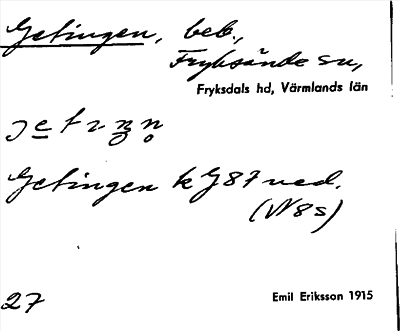 Getingen, beb.,
Fryksände sn,
Fryksdals hd, Värmlands län
Getingen k G 87 ned.
(N 8 s)
27
Emil Eriksson 1915